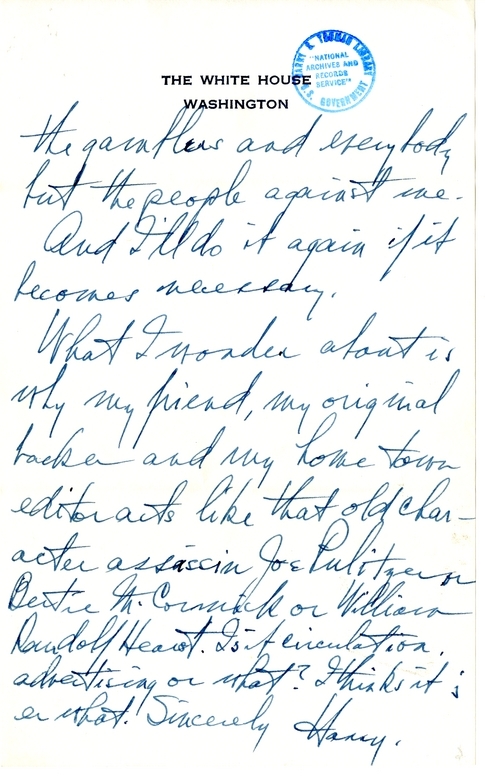 HARRY S. TRUMAN LIBRARY
"NATIONAL
ARCHIVES AND
RECORDS
SERVICE"
U.S. GOVERNMENT
THE WHITE HOUSE
WASHINGTON
the gamblers and everybody
but the people against me.
And I'll do it again if it
becomes necessary.
What I wonder about is
why my friend, my original
backer and my home town
editor acts like that old char-
acter assassin Joe Pulitzer or
Bertie McCormick or William
Randolf Hearst. Is it circulation,
advertising or what? I thinks it is
er what. Sincerely Harry.